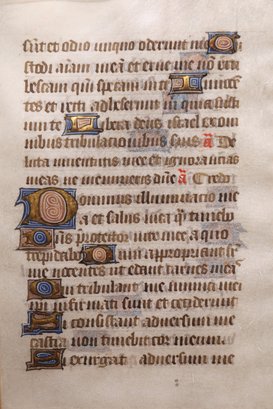 sunt et odio iniquo oderunt me C
stodi aiam mea et erue me no eru
bescam qm speravi in te I nnocen
tes et recti adheserunt m quia sustin
nui te L ibera deus israel ex omi
nibus tribulacionibus suis a De
licta iuventutis mee et ignorancias
meas ne memineris dne a Credo
D ominus illuminatio me
a et salus mea que timebo
D ns protector vite mee a quo
trepidabo D um appropiant super
me nocentes ut edant carnes meas
Q ui tribulant me inimici mei
ipi infirmati sunt et ceciderunt
S i consistant adversum me
castra non timebit cor meum
S i exurgat adversum me